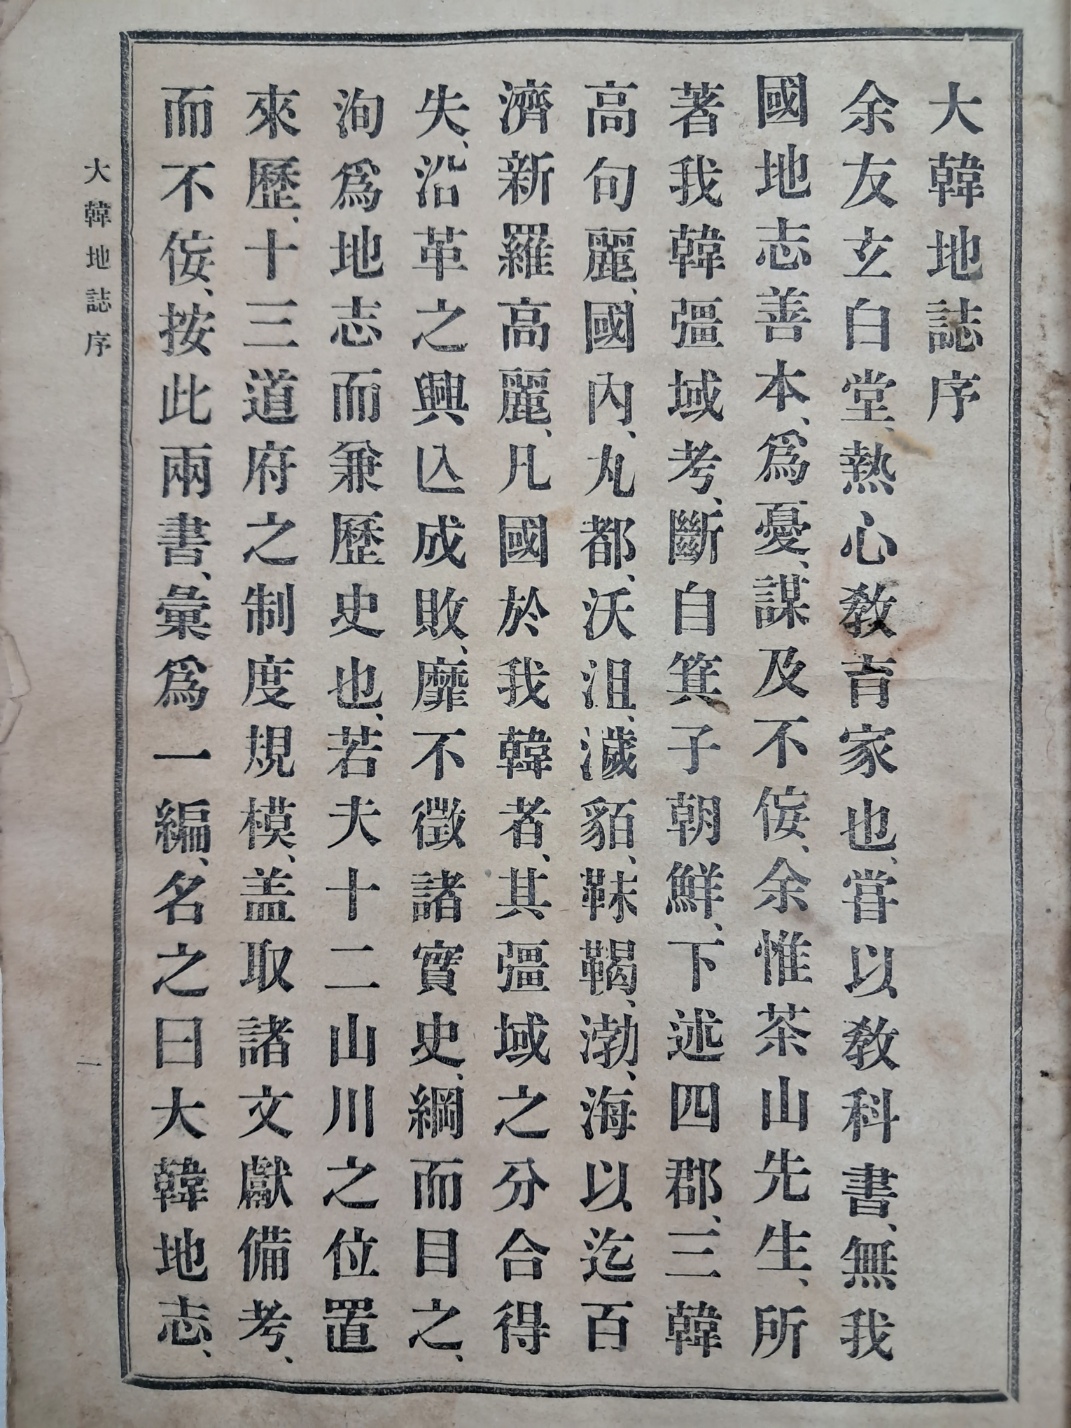 大韓地誌序
余友玄白堂、熱心敎育家也、甞以敎科書、無我
國地志善本、爲憂、謀及不侫、余惟茶山先生、所
著我韓彊域考、斷自箕子朝鮮、下述四郡、三韓
高句麗、國內、丸都、沃沮、濊貊、靺鞨、渤、海以迄百
濟新羅高麗、凡國於我韓者、其彊域之分合得
失、沿革之興亾成敗、靡不徵諸實史、綱而目之、
洵爲地志而兼歷史也、若夫十二山川之位置
來歷、十三道府之制度規模、盖取諸文獻備考、
而不侫、按此兩書、彙爲一編、名之曰大韓地志、
大韓地誌序
一